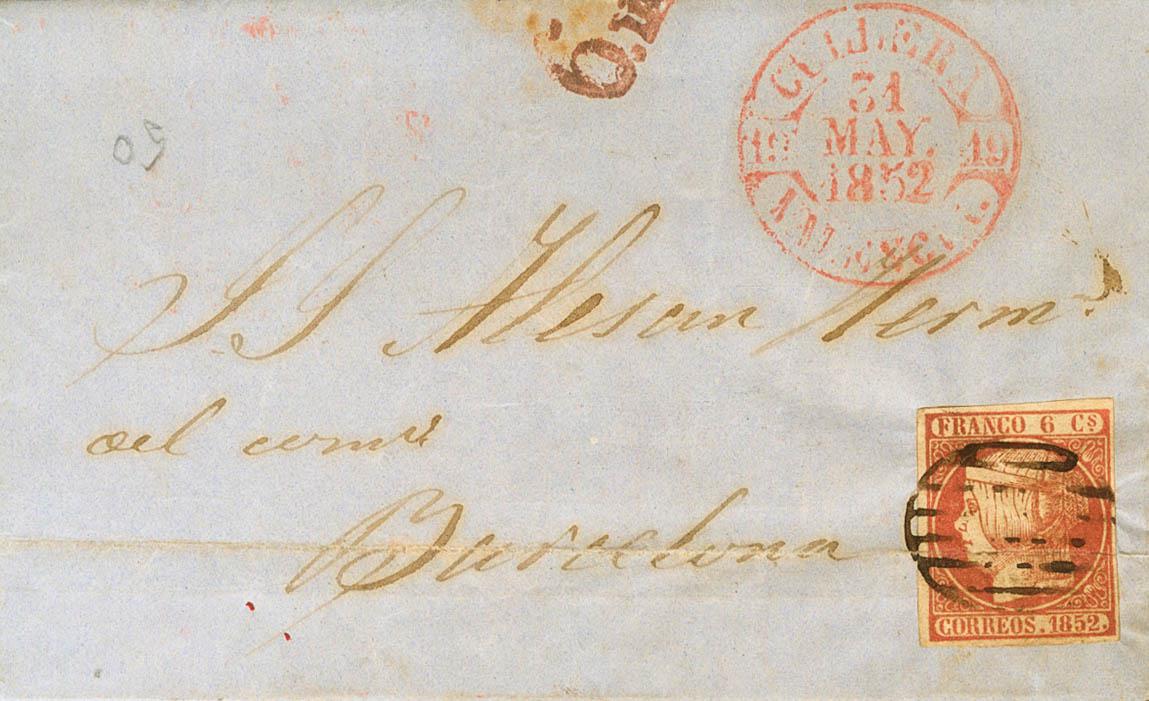 CULLERA
31
MAY.
1852
19 19
VALENCIA
05
S. S. Alesan Herm.s
del com.o
Barcelona
FRANCO 6 Cs
CORREOS. 1852.